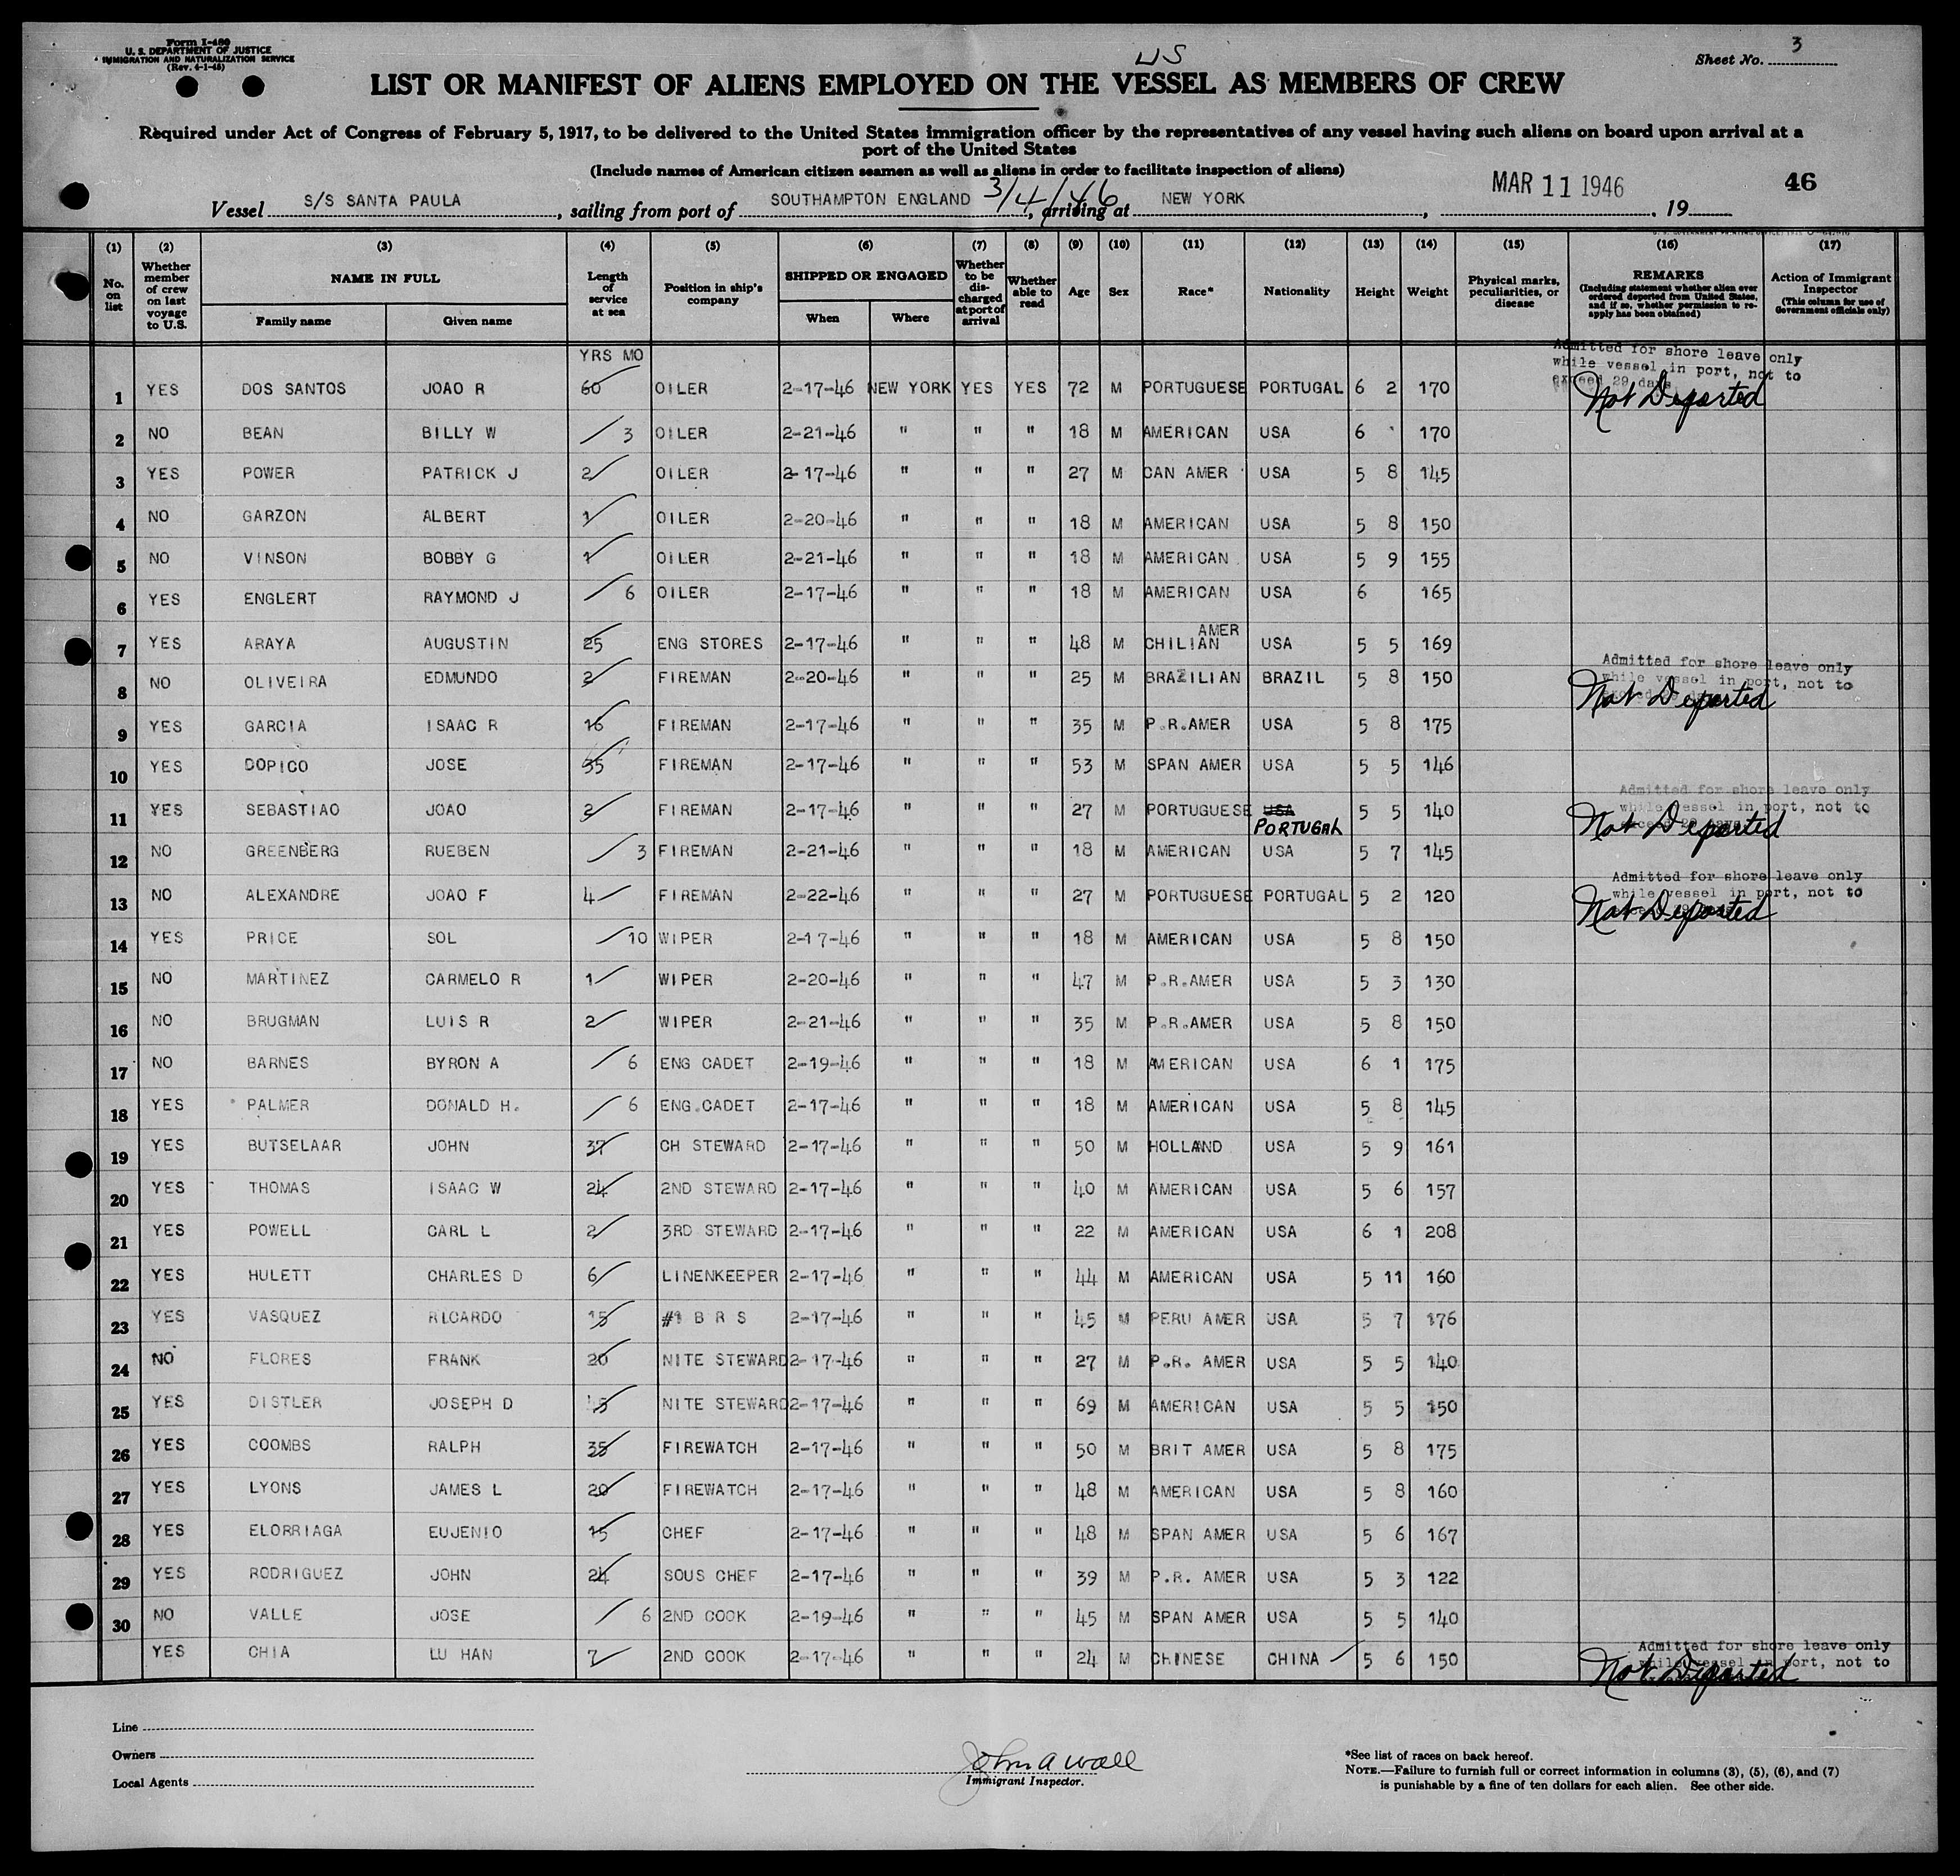 Form I-480
U. S. DEPARTMENT OF JUSTICE
IMMIGRATION AND NATURALIZATION SERVICE
(Rev. 4-1-45)
US
Sheet No. 3
LIST OR MANIFEST OF ALIENS EMPLOYED ON THE VESSEL AS MEMBERS OF CREW
Required under Act of Congress of February 5, 1917, to be delivered to the United States immigration officer by the representatives of any vessel having such aliens on board upon arrival at a
port of the United States
(Include names of American citizen seamen as well as aliens in order to facilitate inspection of aliens)
Vessel S/S SANTA PAULA, sailing from port of SOUTHAMPTON ENGLAND 3/4/46, arriving at NEW YORK, MAR 11 1946, 19 46
(1) (2) (3) (4) (5) (6) (7) (8) (9) (10) (11) (12) (13) (14) (15) (16) (17)
No. on list
Whether member of crew on last voyage to U.S.
NAME IN FULL
Family name
Given name
Length of service at sea
Position in ship's company
SHIPPED OR ENGAGED
When
Where
Whether to be discharged at port of arrival
Whether able to read
Age
Sex
Race*
Nationality
Height
Weight
Physical marks, peculiarities, or disease
REMARKS
(Including statement whether alien ever ordered deported from United States, and if so, whether permission to reapply has been obtained)
Action of Immigrant Inspector
(This column for use of Government officials only)
YRS MO
1 YES DOS SANTOS JOAO R 60 OILER 2-17-46 NEW YORK YES YES 72 M PORTUGUESE PORTUGAL 6 2 170 Admitted for shore leave only while vessel in port, not to exceed 29 days Not Departed
2 NO BEAN BILLY W 3 OILER 2-21-46 " " " 18 M AMERICAN USA 6 170
3 YES POWER PATRICK J 2 OILER 2-17-46 " " " 27 M CAN AMER USA 5 8 145
4 NO GARZON ALBERT 1 OILER 2-20-46 " " " 18 M AMERICAN USA 5 8 150
5 NO VINSON BOBBY G 1 OILER 2-21-46 " " " 18 M AMERICAN USA 5 9 155
6 YES ENGLERT RAYMOND J 6 OILER 2-17-46 " " " 18 M AMERICAN USA 6 165
7 YES ARAYA AUGUSTIN 25 ENG STORES 2-17-46 " " " 48 M CHILIAN AMER USA 5 5 169
8 NO OLIVEIRA EDMUNDO 2 FIREMAN 2-20-46 " " " 25 M BRAZILIAN BRAZIL 5 8 150 Admitted for shore leave only while vessel in port, not to Not Departed
9 YES GARCIA ISAAC R 16 FIREMAN 2-17-46 " " " 35 M P.R.AMER USA 5 8 175
10 YES DOPICO JOSE 35 FIREMAN 2-17-46 " " " 53 M SPAN AMER USA 5 5 146
11 YES SEBASTIAO JOAO 2 FIREMAN 2-17-46 " " " 27 M PORTUGUESE USA PORTUGAL 5 5 140 Admitted for shore leave only while vessel in port, not to exceed 29 days Not Departed
12 NO GREENBERG RUEBEN 3 FIREMAN 2-21-46 " " " 18 M AMERICAN USA 5 7 145
13 NO ALEXANDRE JOAO F 4 FIREMAN 2-22-46 " " " 27 M PORTUGUESE PORTUGAL 5 2 120 Admitted for shore leave only while vessel in port, not to Not Departed
14 YES PRICE SOL 10 WIPER 2-17-46 " " " 18 M AMERICAN USA 5 8 150
15 NO MARTINEZ CARMELO R 1 WIPER 2-20-46 " " " 47 M P.R.AMER USA 5 3 130
16 NO BRUGMAN LUIS R 2 WIPER 2-21-46 " " " 35 M P.R.AMER USA 5 8 150
17 NO BARNES BYRON A 6 ENG CADET 2-19-46 " " " 18 M AMERICAN USA 6 1 175
18 YES PALMER DONALD H. 6 ENG.CADET 2-17-46 " " " 18 M AMERICAN USA 5 8 145
19 YES BUTSELAAR JOHN 37 CH STEWARD 2-17-46 " " " 50 M HOLLAND USA 5 9 161
20 YES THOMAS ISAAC W 24 2ND STEWARD 2-17-46 " " " 40 M AMERICAN USA 5 6 157
21 YES POWELL CARL L 2 3RD STEWARD 2-17-46 " " " 22 M AMERICAN USA 6 1 208
22 YES HULETT CHARLES D 6 LINENKEEPER 2-17-46 " " " 44 M AMERICAN USA 5 11 160
23 YES VASQUEZ RICARDO 15 #1 B R S 2-17-46 " " " 45 M PERU AMER USA 5 7 176
24 NO FLORES FRANK 20 NITE STEWARD 2-17-46 " " " 27 M P.R. AMER USA 5 5 140
25 YES DISTLER JOSEPH D NITE STEWARD 2-17-46 " " " 69 M AMERICAN USA 5 5 150
26 YES COOMBS RALPH 35 FIREWATCH 2-17-46 " " " 50 M BRIT AMER USA 5 8 175
27 YES LYONS JAMES L 20 FIREWATCH 2-17-46 " " " 48 M AMERICAN USA 5 8 160
28 YES ELORRIAGA EUJENIO 15 CHEF 2-17-46 " " " 48 M SPAN AMER USA 5 6 167
29 YES RODRIGUEZ JOHN 24 SOUS CHEF 2-17-46 " " " 39 M P.R. AMER USA 5 3 122
30 NO VALLE JOSE 6 2ND COOK 2-19-46 " " " 45 M SPAN AMER USA 5 5 140
YES CHIA LU HAN 7 2ND COOK 2-17-46 " " " 24 M CHINESE CHINA 5 6 150 Admitted for shore leave only while vessel in port, not to Not Departed
Line
Owners
Local Agents
John A Wall
Immigrant Inspector.
*See list of races on back hereof.
NOTE.—Failure to furnish full or correct information in columns (3), (5), (6), and (7)
is punishable by a fine of ten dollars for each alien. See other side.